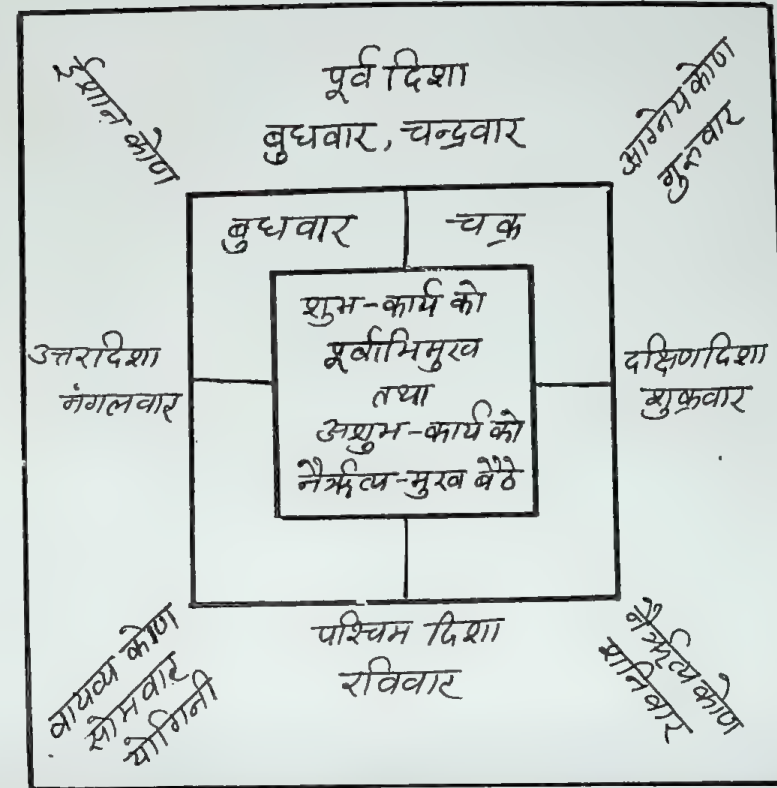 ईशान कोण
पूर्व दिशा
बुधवार, चन्द्रवार
आग्नेय कोण
गुरुवार
बुधवार
चक्र
शुभ-कार्य को
पूर्वाभिमुख
तथा
अशुभ-कार्य को
नैर्ऋत्य-मुख बैठे
उत्तरदिशा
मंगलवार
दक्षिणदिशा
शुक्रवार
वायव्य कोण
सोमवार
योगिनी
पश्चिम दिशा
रविवार
नैर्ऋत्य कोण
शनिवार